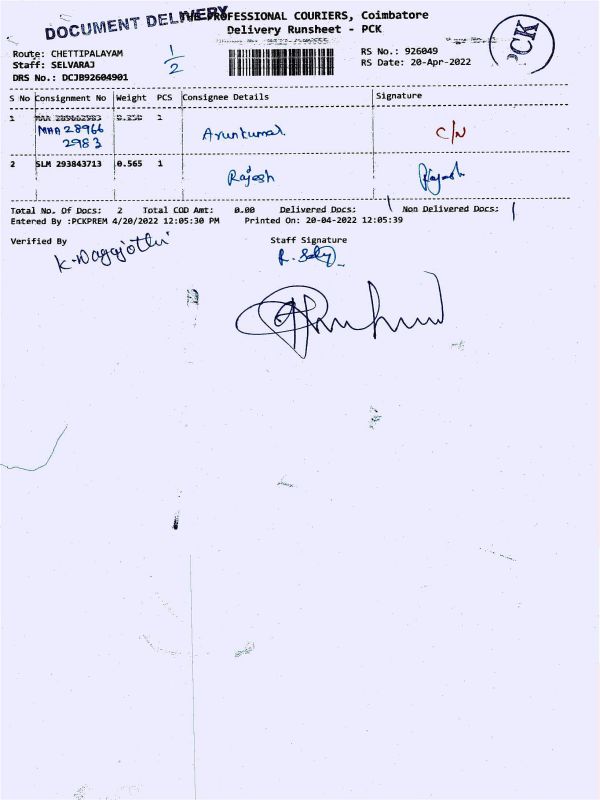 DOCUMENT DELIVERY
THE PROFESSIONAL COURIERS, Coimbatore
Delivery Runsheet - PCK
PCK
Route: CHETTIPALAYAM
Staff: SELVARAJ
DRS No.: DCJB92604901
1/2
RS No.: 926049
RS Date: 20-Apr-2022
S No Consignment No Weight PCS Consignee Details Signature
1 MAA 289662983 0.250 1
MAA 28966
2983
Arunkumar C/N
2 SLM 293843713 0.565 1
Rajesh Rajesh
Total No. Of Docs: 2 Total COD Amt: 0.00 Delivered Docs: | Non Delivered Docs: |
Entered By :PCKPREM 4/20/2022 12:05:30 PM Printed On: 20-04-2022 12:05:39
Verified By Staff Signature
K. Nagajothi